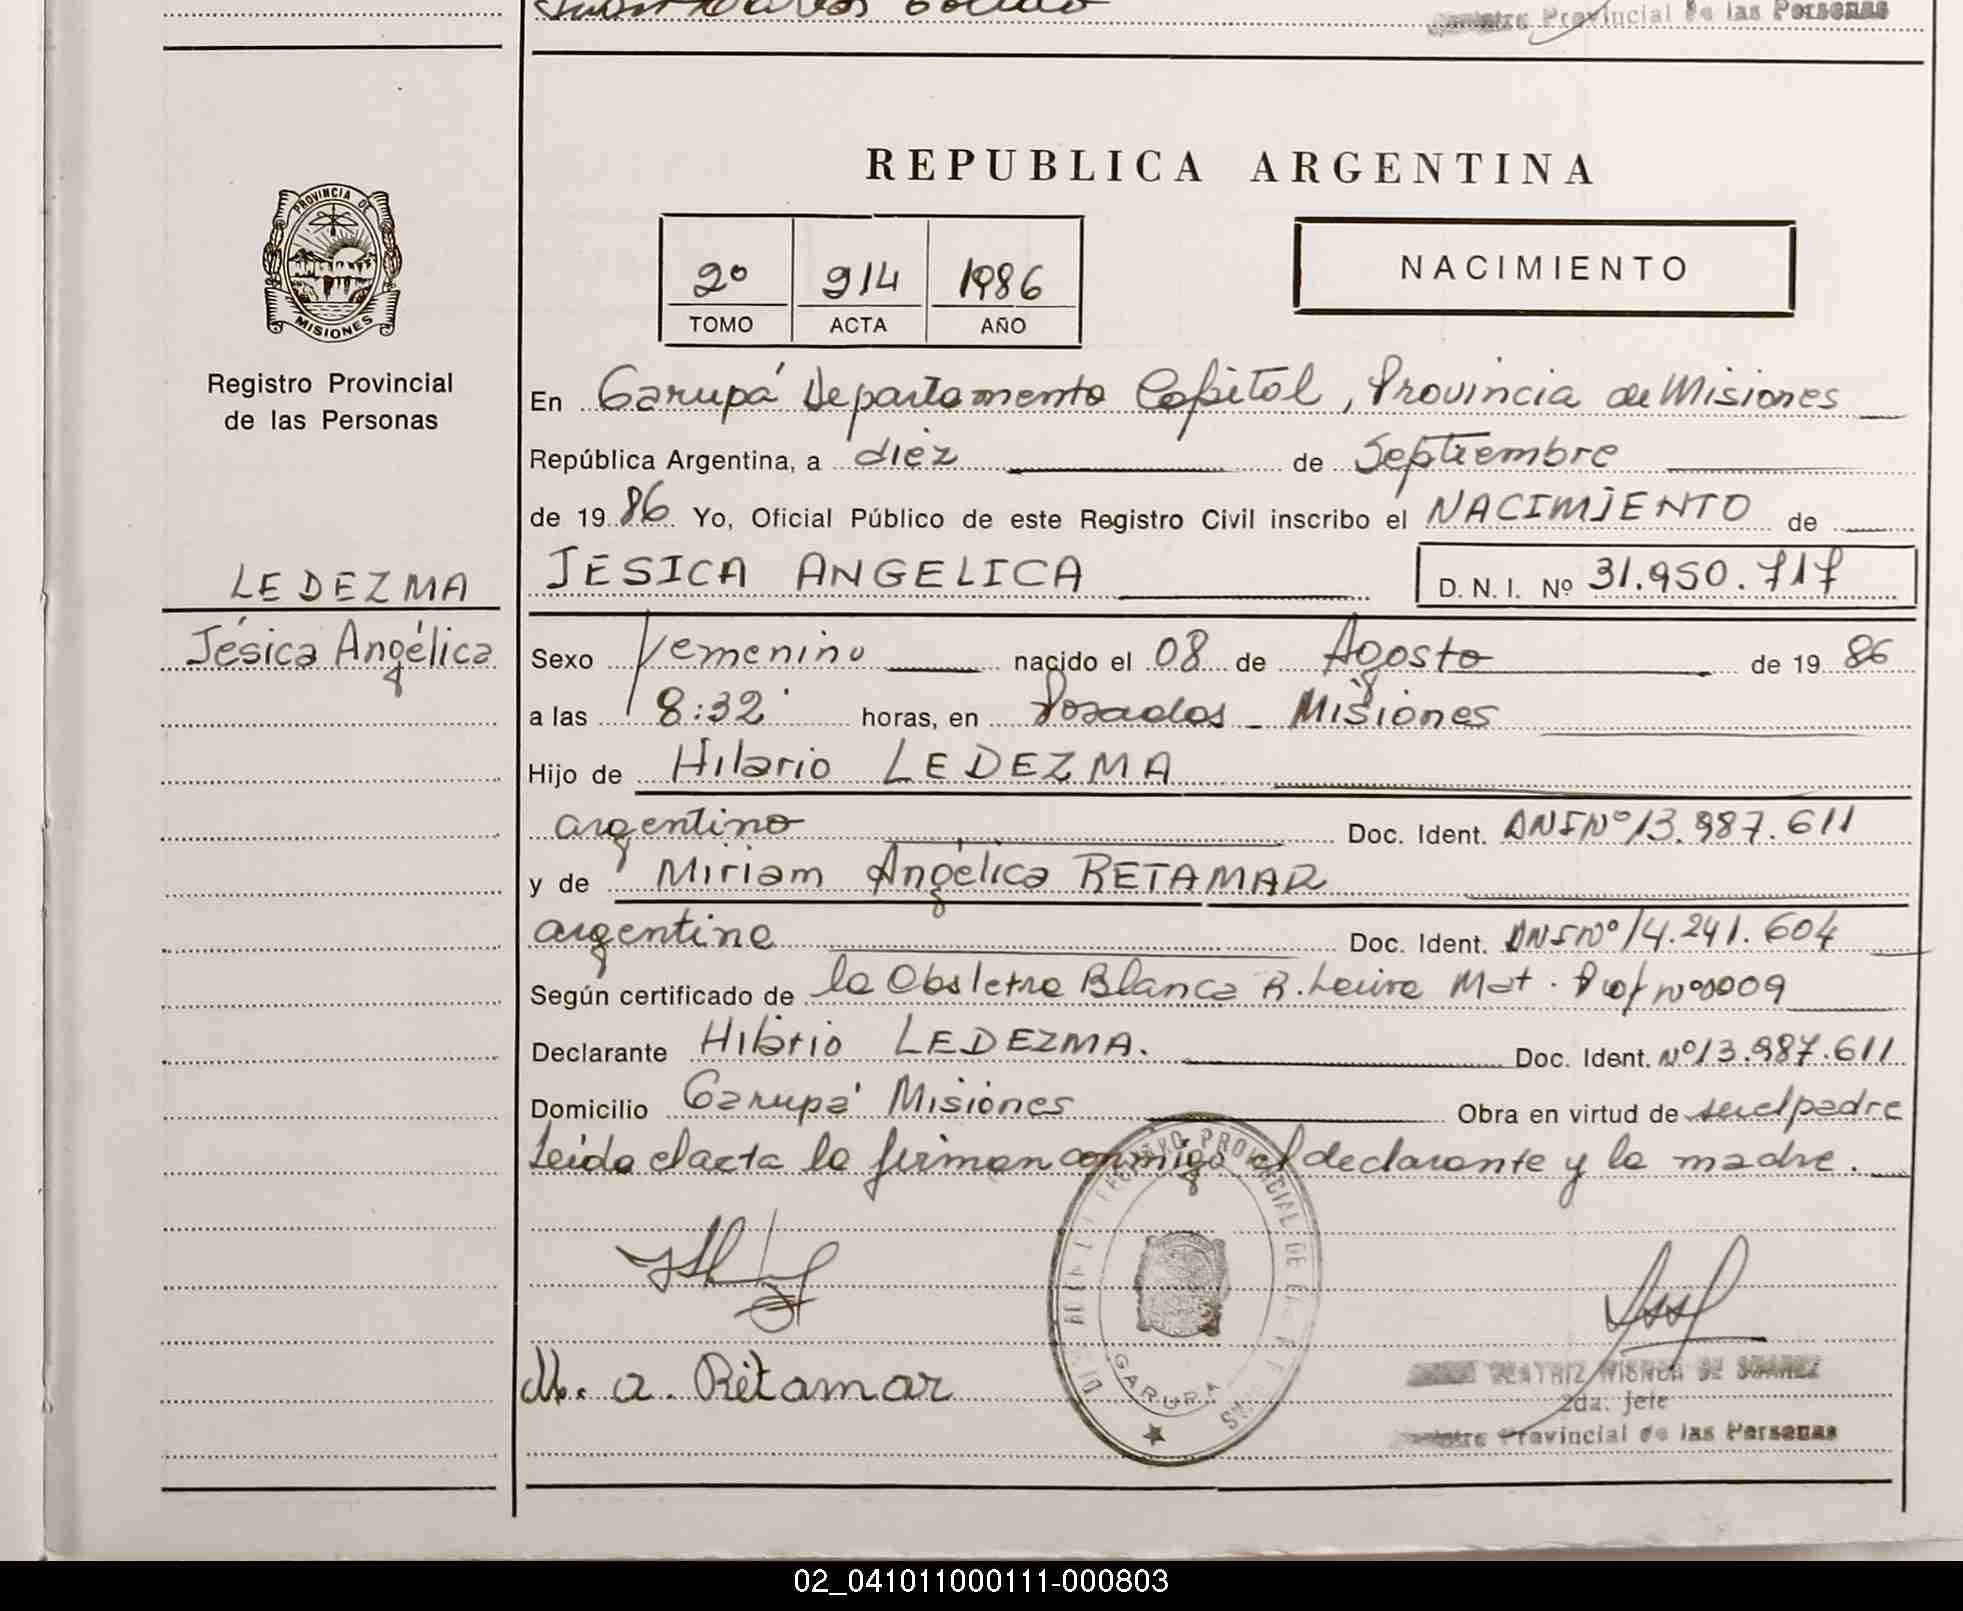 Provincial de las Personas
REPUBLICA ARGENTINA
PROVINCIA DE
MISIONES
Registro Provincial
de las Personas
2º 914 1986
TOMO ACTA AÑO
NACIMIENTO
En Garupá Departamento Capital, Provincia de Misiones
República Argentina, a diez de Septiembre
de 1986 Yo, Oficial Público de este Registro Civil inscribo el NACIMIENTO de
LEDEZMA
Jésica Angélica
JESICA ANGELICA D. N. I. Nº 31.950.717
Sexo Femenino nacido el 08 de Agosto de 1986
a las 8:32 horas, en Posadas - Misiones
Hijo de Hilario LEDEZMA
argentino Doc. Ident. DNI Nº 13.987.611
y de Miriam Angélica RETAMAR
argentina Doc. Ident. DNI Nº 14.241.604
Según certificado de la Obstetra Blanca R. Leiva Mat. Prof nº 0009
Declarante Hilario LEDEZMA. Doc. Ident. Nº 13.987.611
Domicilio Garupá Misiones Obra en virtud de ser el padre
Leída el acta la firman conmigo el declarante y la madre.
REGISTRO PROVINCIAL DE LAS
GARUPA
M. a. Retamar
BEATRIZ DE SUAREZ
2da. Jefe
Provincial de las Personas
02_041011000111-000803